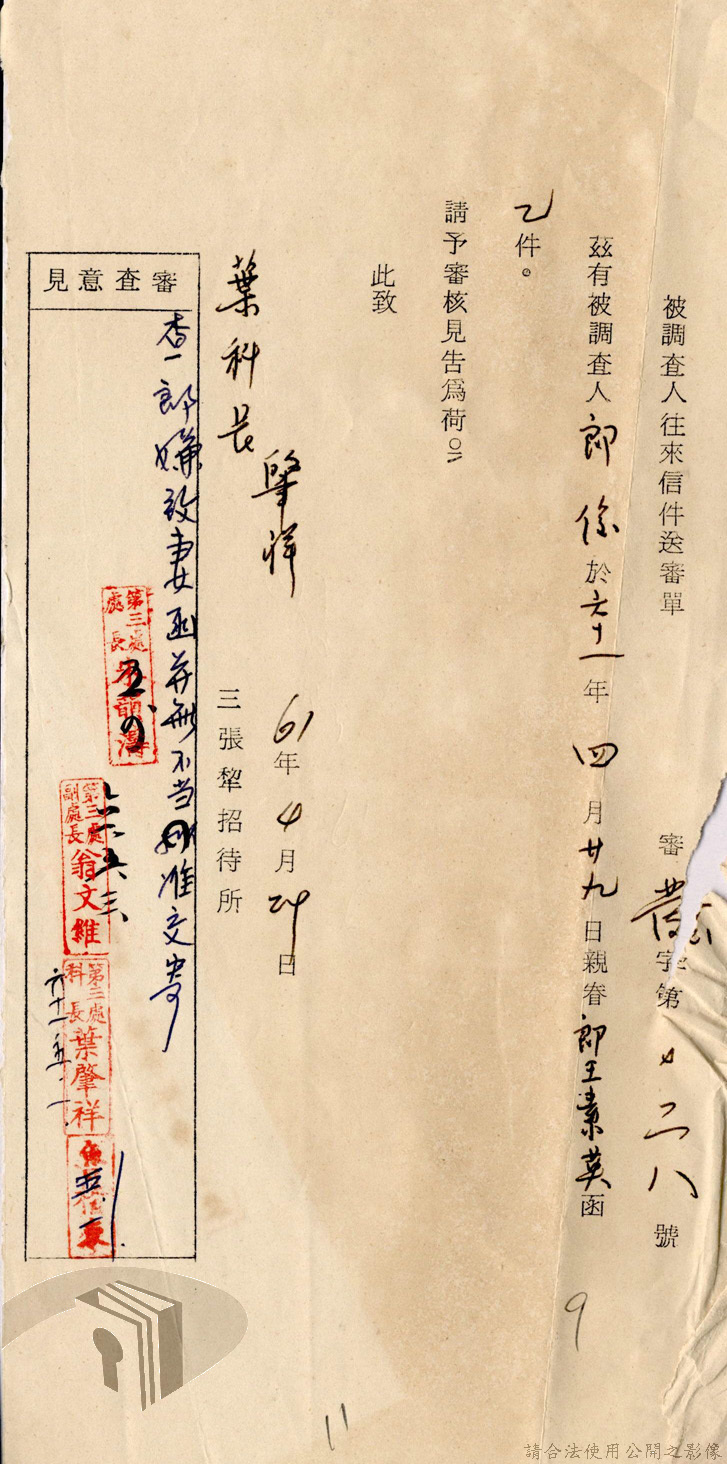 被調查人往來信件送審單
審 字第 二八號
茲有被調查人郎俊於六十一年四月廿九日親眷郎王素英函
乙件。
請予審核見告為荷。
此致
葉科長肇祥
61年4月29日
三張犂招待所
審查意見
查郎嫌致妻函並無不当 准交寄
第三處處長
五 
第三處副處長翁文維
六十一、五、三
第三處科長葉肇祥
六十一、五、一
9
11
請合法使用公開之影像